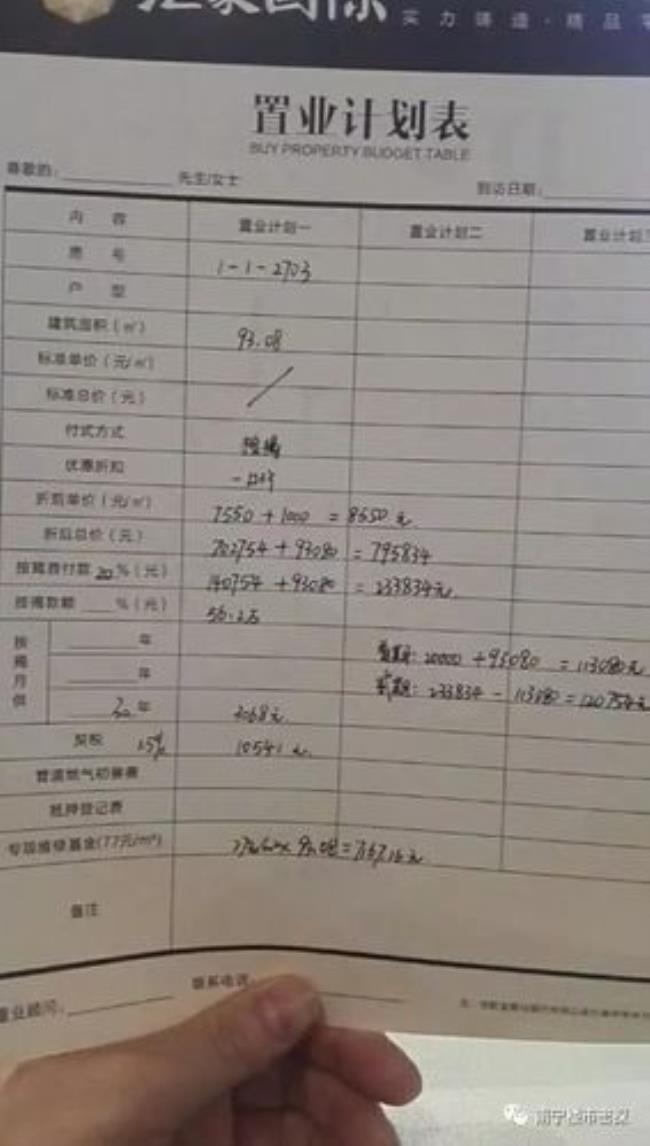 实力铸造·精品
置业计划表
BUY PROPERTY BUDGET TABLE
尊敬的: 先生/女士 到访日期:
内 容 置业计划一 置业计划二 置业计划三
房 号 1-1-2703
户 型
建筑面积(㎡) 93.08
标准单价(元/㎡)
标准总价(元) /
付式方式 按揭
优惠折扣
折后单价(元/㎡) 7550+1000=8550元
折后总价(元) 702754+93080=795834
按揭首付款 20 %(元) 140754+93080=233834元
按揭款额 %(元) 56.2万
按揭月供
年 首期: 20000+93080=113080元
年 233834-113080=120754元
30年 3068元
契税 1.5% 10541元
管道燃气初装费
抵押登记费
专项维修基金(77元/m²) ×93.08=7167.16元
备注
置业顾问: 联系电话:
南宁楼市